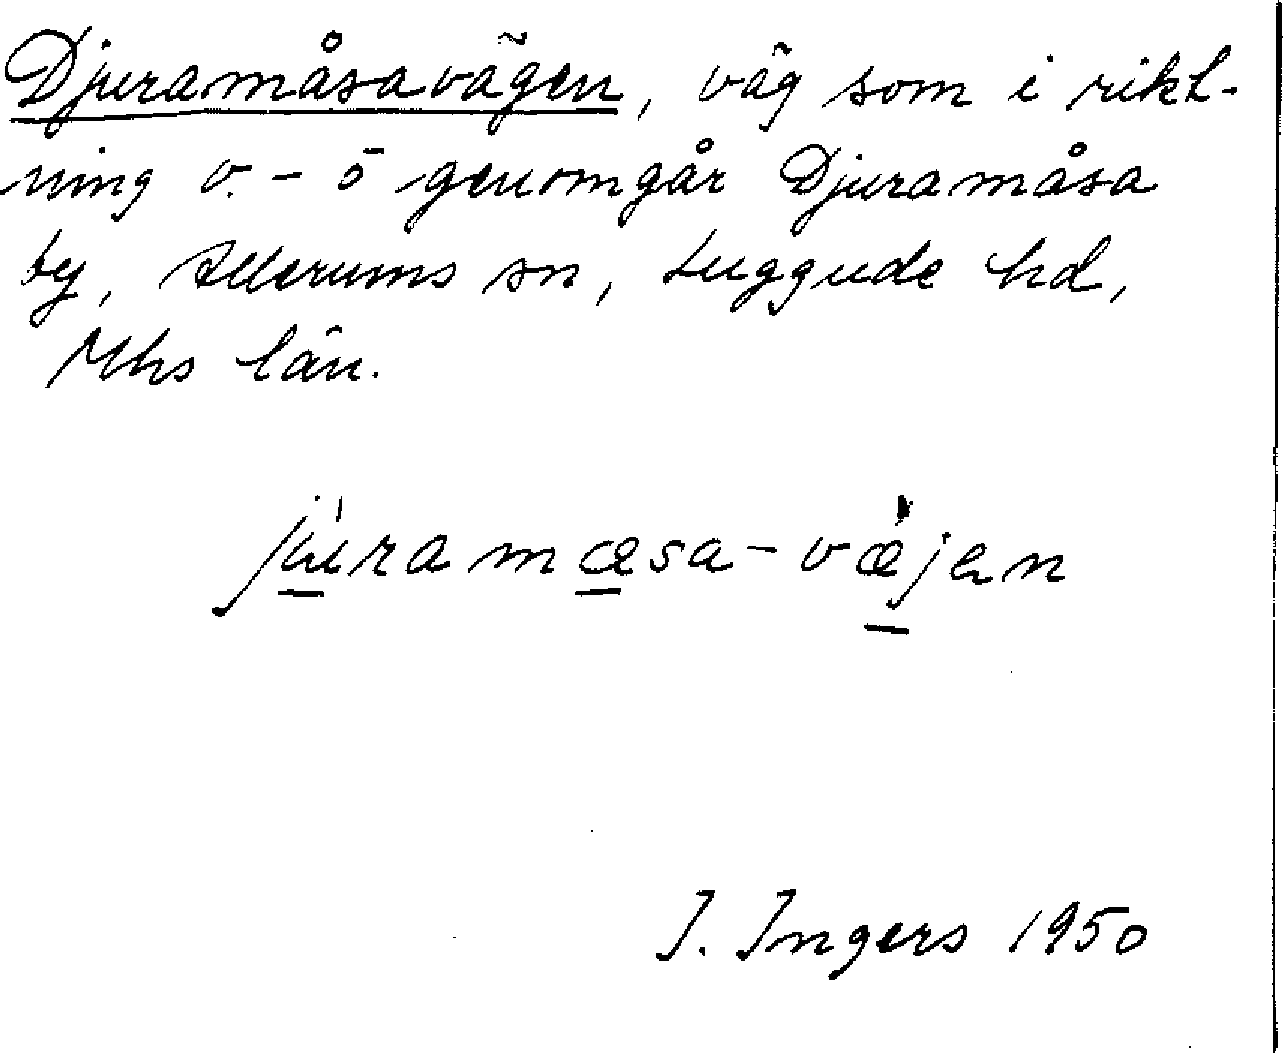 Djuramåsavägen, väg som i rikt-
ning v. - ö genomgår Djuramåsa
by, Allerums sn, Luggude hd,
Mhs län.
jùramæsa-væ̀jen
I. Ingers 1950